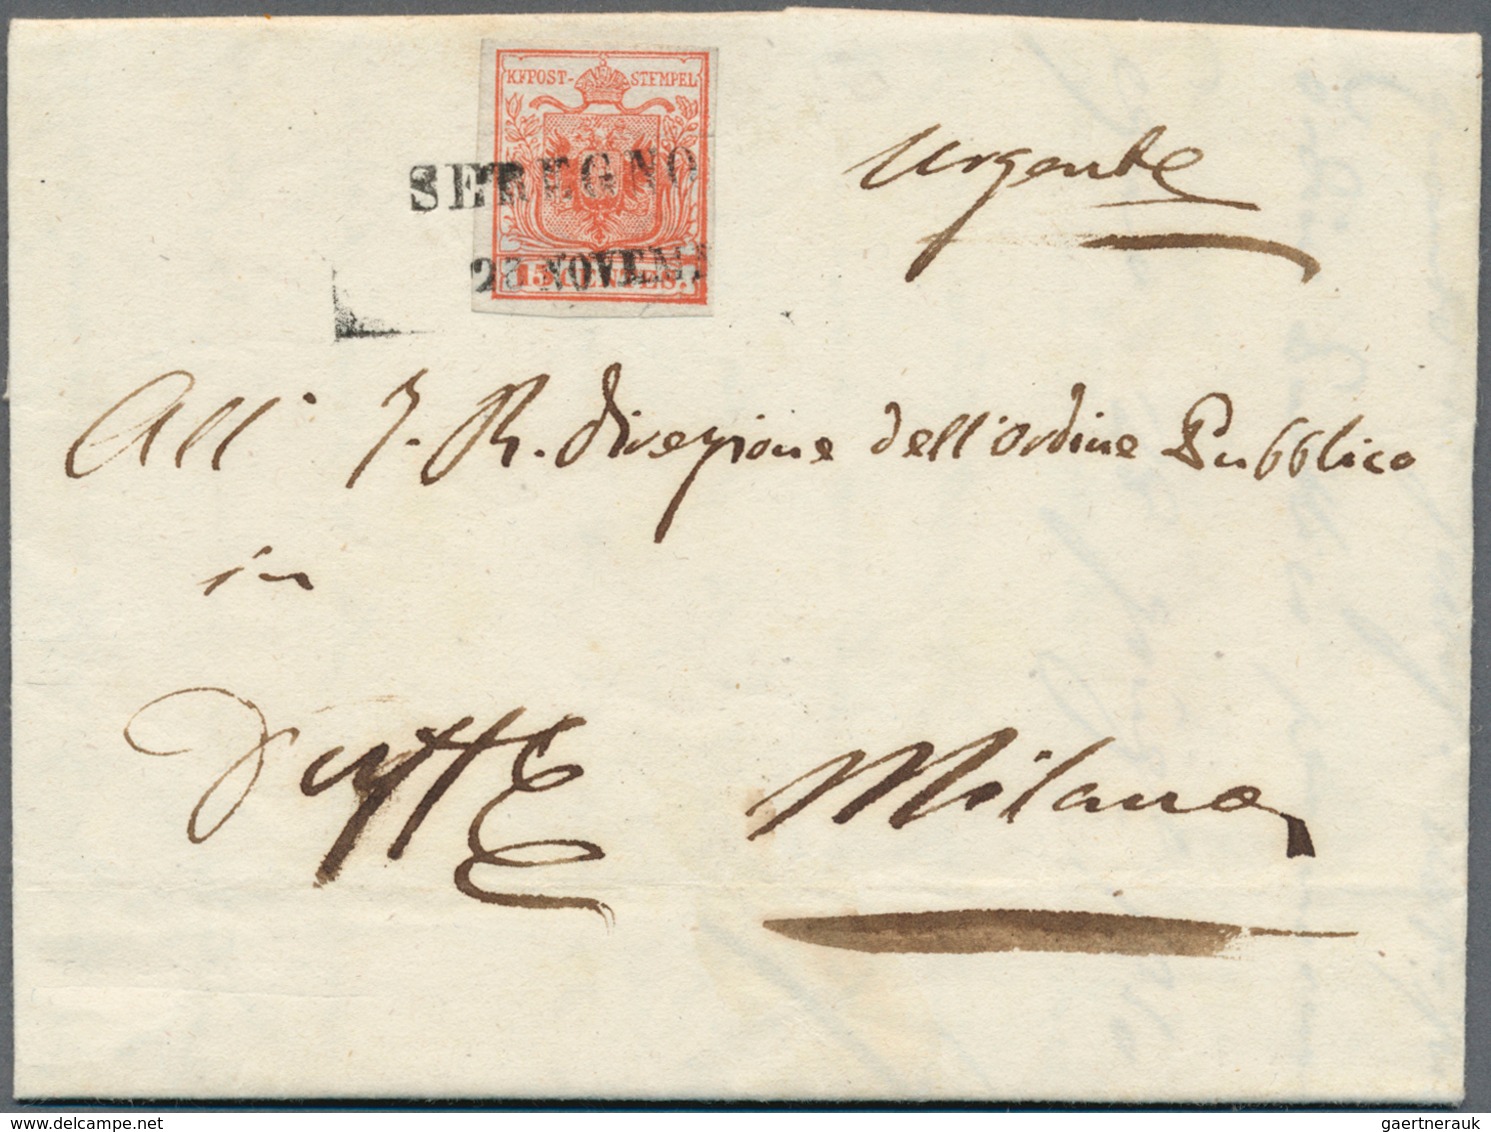 KKPOST-STEMPEL
SEREGNO
NOVEM
15 CENTES.
Urgente
All' I. R. Direzione dell'Ordine Pubblico
in
Milano
gaertnerauk